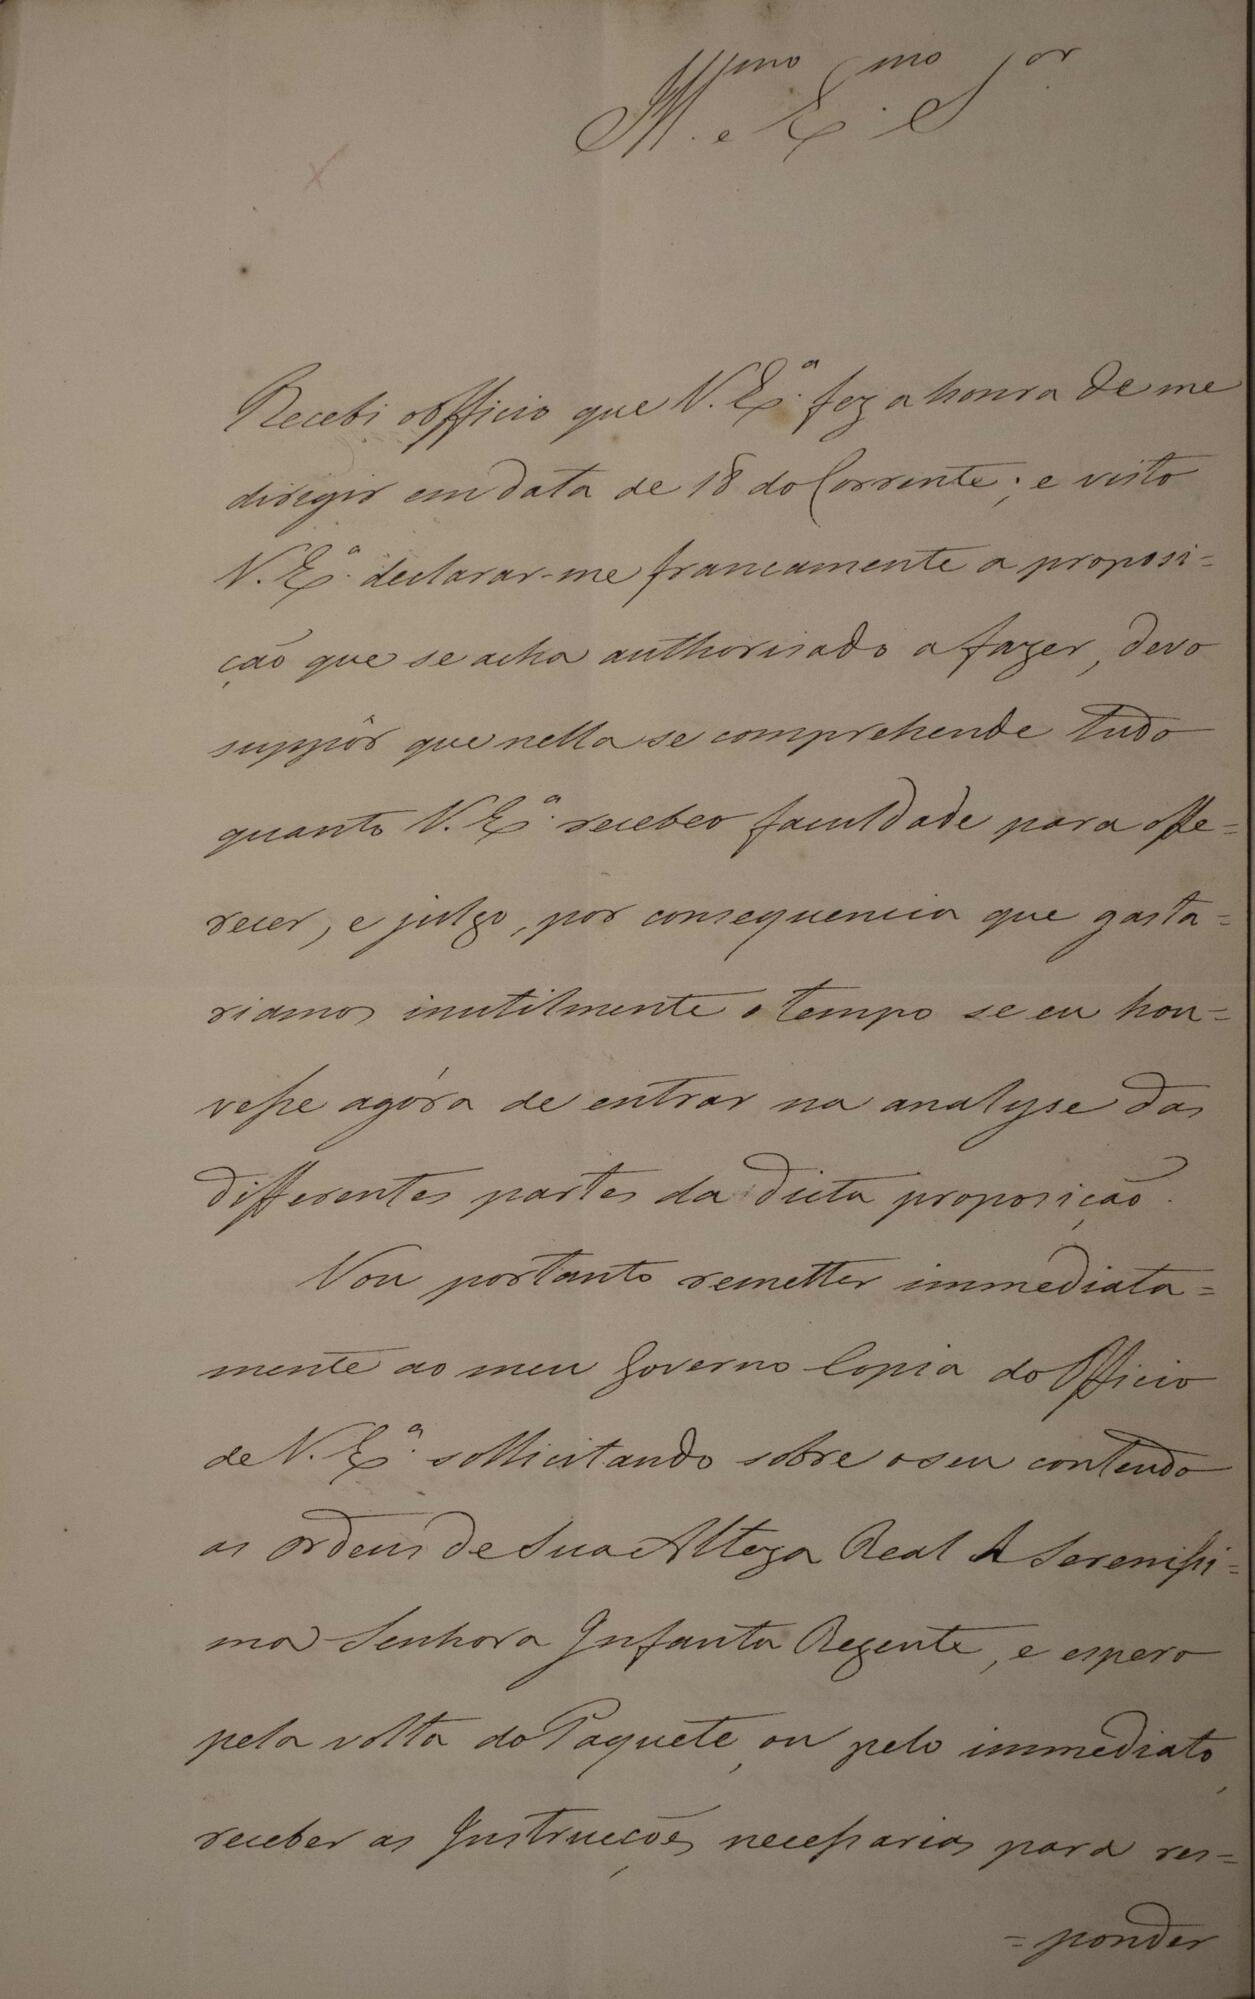 Ill.mo e Ex.mo S.or
Recebi o Officio que V. Ex.a fez a honra de me
diregir em data de 18 do Corrente; e visto
V. Ex.a declarar-me francamente a proposi=
ção que se acha authorisado a fazer, devo
suppôr que nella se comprehende tudo
quanto V. Ex.a recebeo faculdade para offe=
recer, e julgo, por consequencia que gasta=
riamos inutilmente o tempo se eu hou=
vesse agóra de entrar na analyse das
differentes partes da dicta proposição.
Vou portanto remetter immediata=
mente ao meu Governo Copia do Officio
de V. Ex.a sollicitando sobre o seu contendo
as ordens de Sua Alteza Real A Serenissi=
ma Senhora Infanta Regente, e espero
pela volta do Paquete, ou pelo immediato,
receber as Instrucções necessarias para res=
=ponder